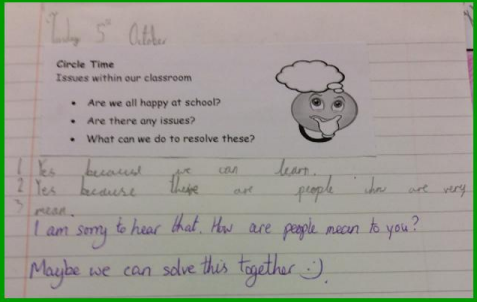 5th October
Circle Time
Issues within our classroom
• Are we all happy at school?
• Are there any issues?
• What can we do to resolve these?
1 Yes because we can learn.
2 Yes because there are people who are very
3 mean.
I am sorry to hear that. How are people mean to you?
Maybe we can solve this together :)